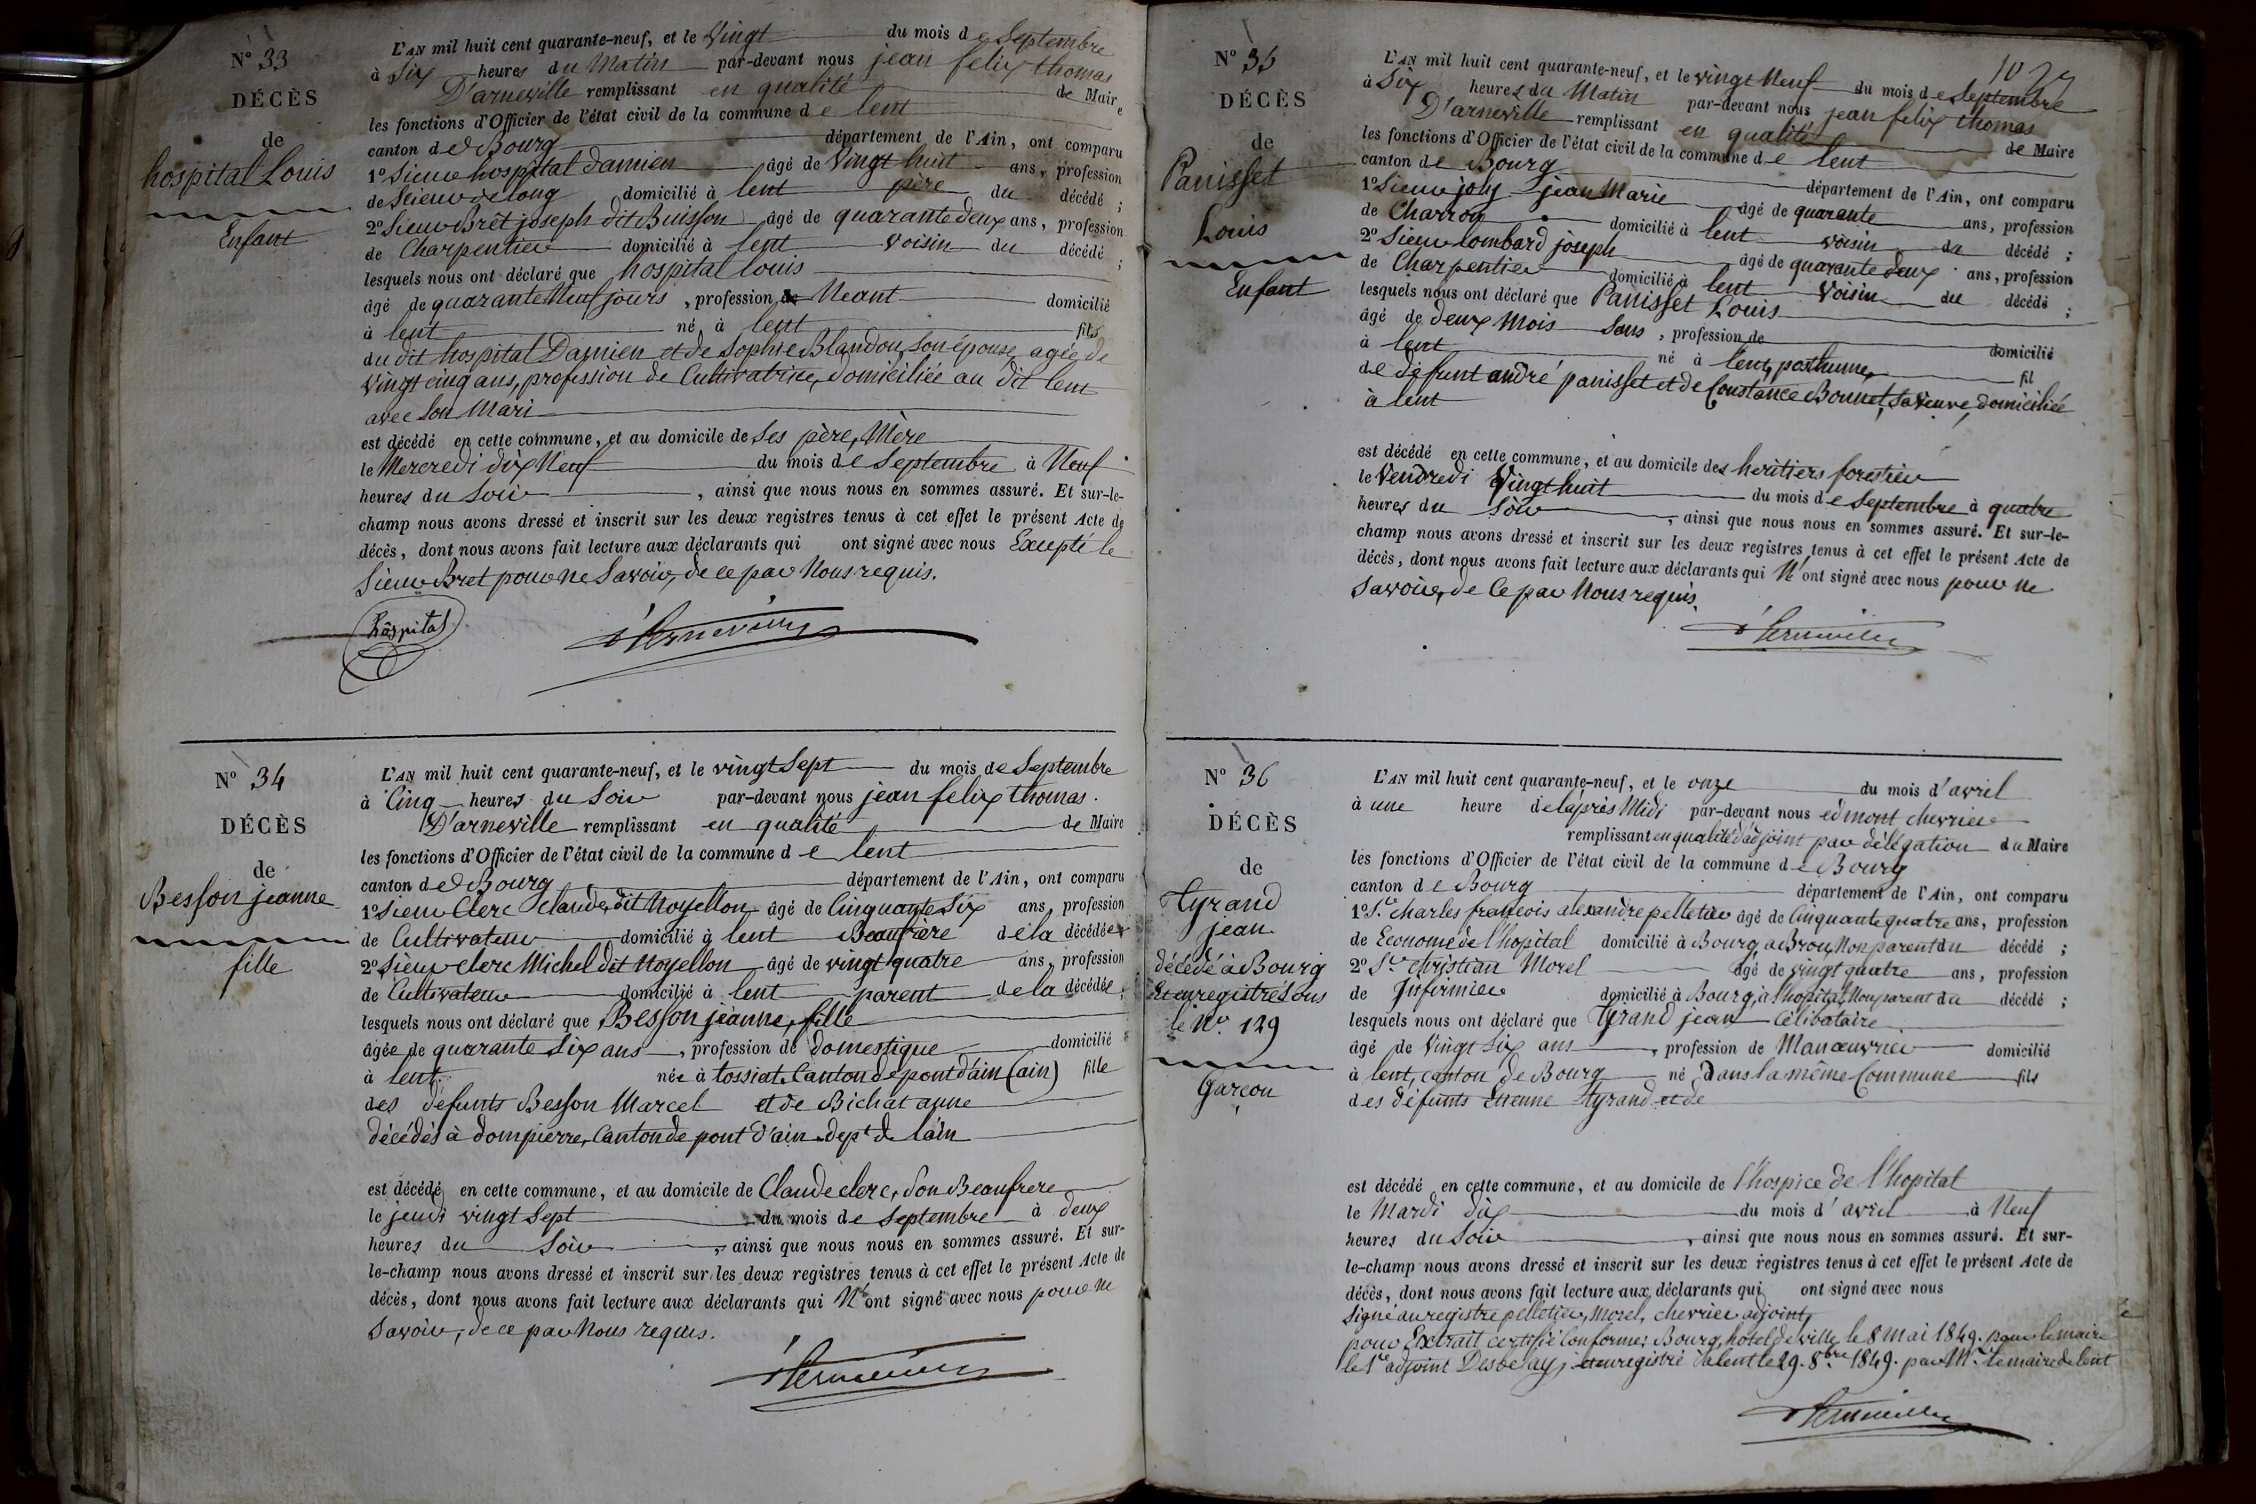 N° 33
DÉCÈS
de
hospital Louis
Enfant
L'AN mil huit cent quarante-neuf, et le Vingt du mois de Septembre
à Six heures du Matin par-devant nous jean felix thomas
D'arneville remplissant en qualité de Maire
les fonctions d'Officier de l'état civil de la commune de lent
canton de Bourg département de l'Ain, ont comparu
1° Sieur hospital Damien âgé de Vingt huit ans, profession
de Scieur de long domicilié à lent père du décédé ;
2° Sieur Brêt joseph dit Buisson âgé de quarante deux ans, profession
de Charpentier domicilié à lent Voisin du décédé ;
lesquels nous ont déclaré que hospital louis
âgé de quarante Neuf jours , profession de Neant domicilié
à lent né à lent fils
du dit hospital Damien et de Sophie Blandon, son épouse, agée de
Vingt cinq ans, profession de Cultivatrice, domiciliée au dit lent
avec Son Mari
est décédé en cette commune, et au domicile de Ses père, Mère
le Mercredi dix Neuf du mois de Septembre à Neuf
heures du Soir , ainsi que nous nous en sommes assuré. Et sur-le-
champ nous avons dressé et inscrit sur les deux registres tenus à cet effet le présent Acte de
décès, dont nous avons fait lecture aux déclarants qui ont signé avec nous Excepté le
Sieur Bret pour ne Savoir, de ce par Nous requis.
hôspital
N° 34
DÉCÈS
de
Besson jeanne
fille
L'AN mil huit cent quarante-neuf, et le vingt Sept du mois de Septembre
à Cinq heures du Soir par-devant nous jean felix thomas.
D'arneville remplissant en qualité de Maire
les fonctions d'Officier de l'état civil de la commune de lent
canton de Bourg département de l'Ain, ont comparu
1° Sieur Clerc claude, dit Noyellon âgé de Cinquante Six ans, profession
de Cultivateur domicilié à lent Beaufrere de la décédée
2° Sieur clerc Michel dit Noyellon âgé de vingt quatre ans, profession
de Cultivateur domicilié à lent parent de la décédée ;
lesquels nous ont déclaré que Besson jeanne, fille
âgée de quarante Six ans , profession de domestique domicilié
à lent née à tossiat Canton de pont d'ain (ain) fille
des défunts Besson Marcel et de Bichat anne
décédés à dompierre, Canton de pont d'ain dept de l'ain
est décédé en cette commune, et au domicile de Claude clerc, Son Beaufrere
le jeudi vingt Sept du mois de Septembre à deux
heures du Soir , ainsi que nous nous en sommes assuré. Et sur-
le-champ nous avons dressé et inscrit sur les deux registres tenus à cet effet le présent Acte de
décès, dont nous avons fait lecture aux déclarants qui N'ont signé avec nous pour ne
Savoir, de ce par Nous requis.
1027
N° 35
DÉCÈS
de
Panisset
Louis
Enfant
L'AN mil huit cent quarante-neuf, et le vingt Neuf du mois de Septembre
à Six heures du Matin par-devant nous jean felix thomas
D'arneville remplissant en qualité de Maire
les fonctions d'Officier de l'état civil de la commune de lent
canton de Bourg département de l'Ain, ont comparu
1° Sieur joly jean Marie âgé de quarante ans, profession
de Charron domicilié à lent voisin du décédé ;
2° Sieur lombard joseph âgé de quarante deux ans, profession
de Charpentier domicilié à lent Voisin du décédé ;
lesquels nous ont déclaré que Panisset Louis
âgé de deux Mois Sans , profession de domicilié
à lent né à lent, posthume, fil
de défunt andré panisset et de Constance Bonnet, sa veuve, domiciliée
à lent
est décédé en cette commune, et au domicile des heritiers forestier
le Vendredi Vingt huit du mois de Septembre à quatre
heures du Soir , ainsi que nous nous en sommes assuré. Et sur-le-
champ nous avons dressé et inscrit sur les deux registres tenus à cet effet le présent Acte de
décès, dont nous avons fait lecture aux déclarants qui N'ont signé avec nous pour ne
Savoir, de Ce par Nous requis.
N° 36
DÉCÈS
de
Tyrand
jean
décédé à Bourg
Et enregistré Sous
le N° 129
Garcon
L'AN mil huit cent quarante-neuf, et le onze du mois d'avril
à une heure de l'après Midi par-devant nous edmont chevrier
remplissant en qualité d'adjoint par délégation du Maire
les fonctions d'Officier de l'état civil de la commune de Bourg
canton de Bourg département de l'Ain, ont comparu
1° Sr charles francois alexandre pelletier âgé de Cinquante quatre ans, profession
de Econome de l'hopital domicilié à Bourg, a Brou, Non parent du décédé ;
2° Sr christian Morel âgé de vingt quatre ans, profession
de Infirmier domicilié à Bourg, à l'hopital, Non parent du décédé ;
lesquels nous ont déclaré que Tyrand jean Célibataire
âgé de Vingt Six ans , profession de Manœuvrier domicilié
à lent, canton de Bourg né Dans la même Commune fils
des défunts Etienne Tyrand et de
est décédé en cette commune, et au domicile de l'hospice de l'hopital
le Mardi dix du mois d'avril à Neuf
heures du Soir , ainsi que nous nous en sommes assuré. Et sur-
le-champ nous avons dressé et inscrit sur les deux registres tenus à cet effet le présent Acte de
décès, dont nous avons fait lecture aux déclarants qui ont signé avec nous
Signé au registre pelletier, Morel, chevrier adjoint,
pour Extrait certifié Conforme: Bourg, hotel de ville, le 8 mai 1849. pour le maire
le 1er adjoint Desbelay, et enregistré à lent le 29. 8bre 1849. par Mr le maire de lent